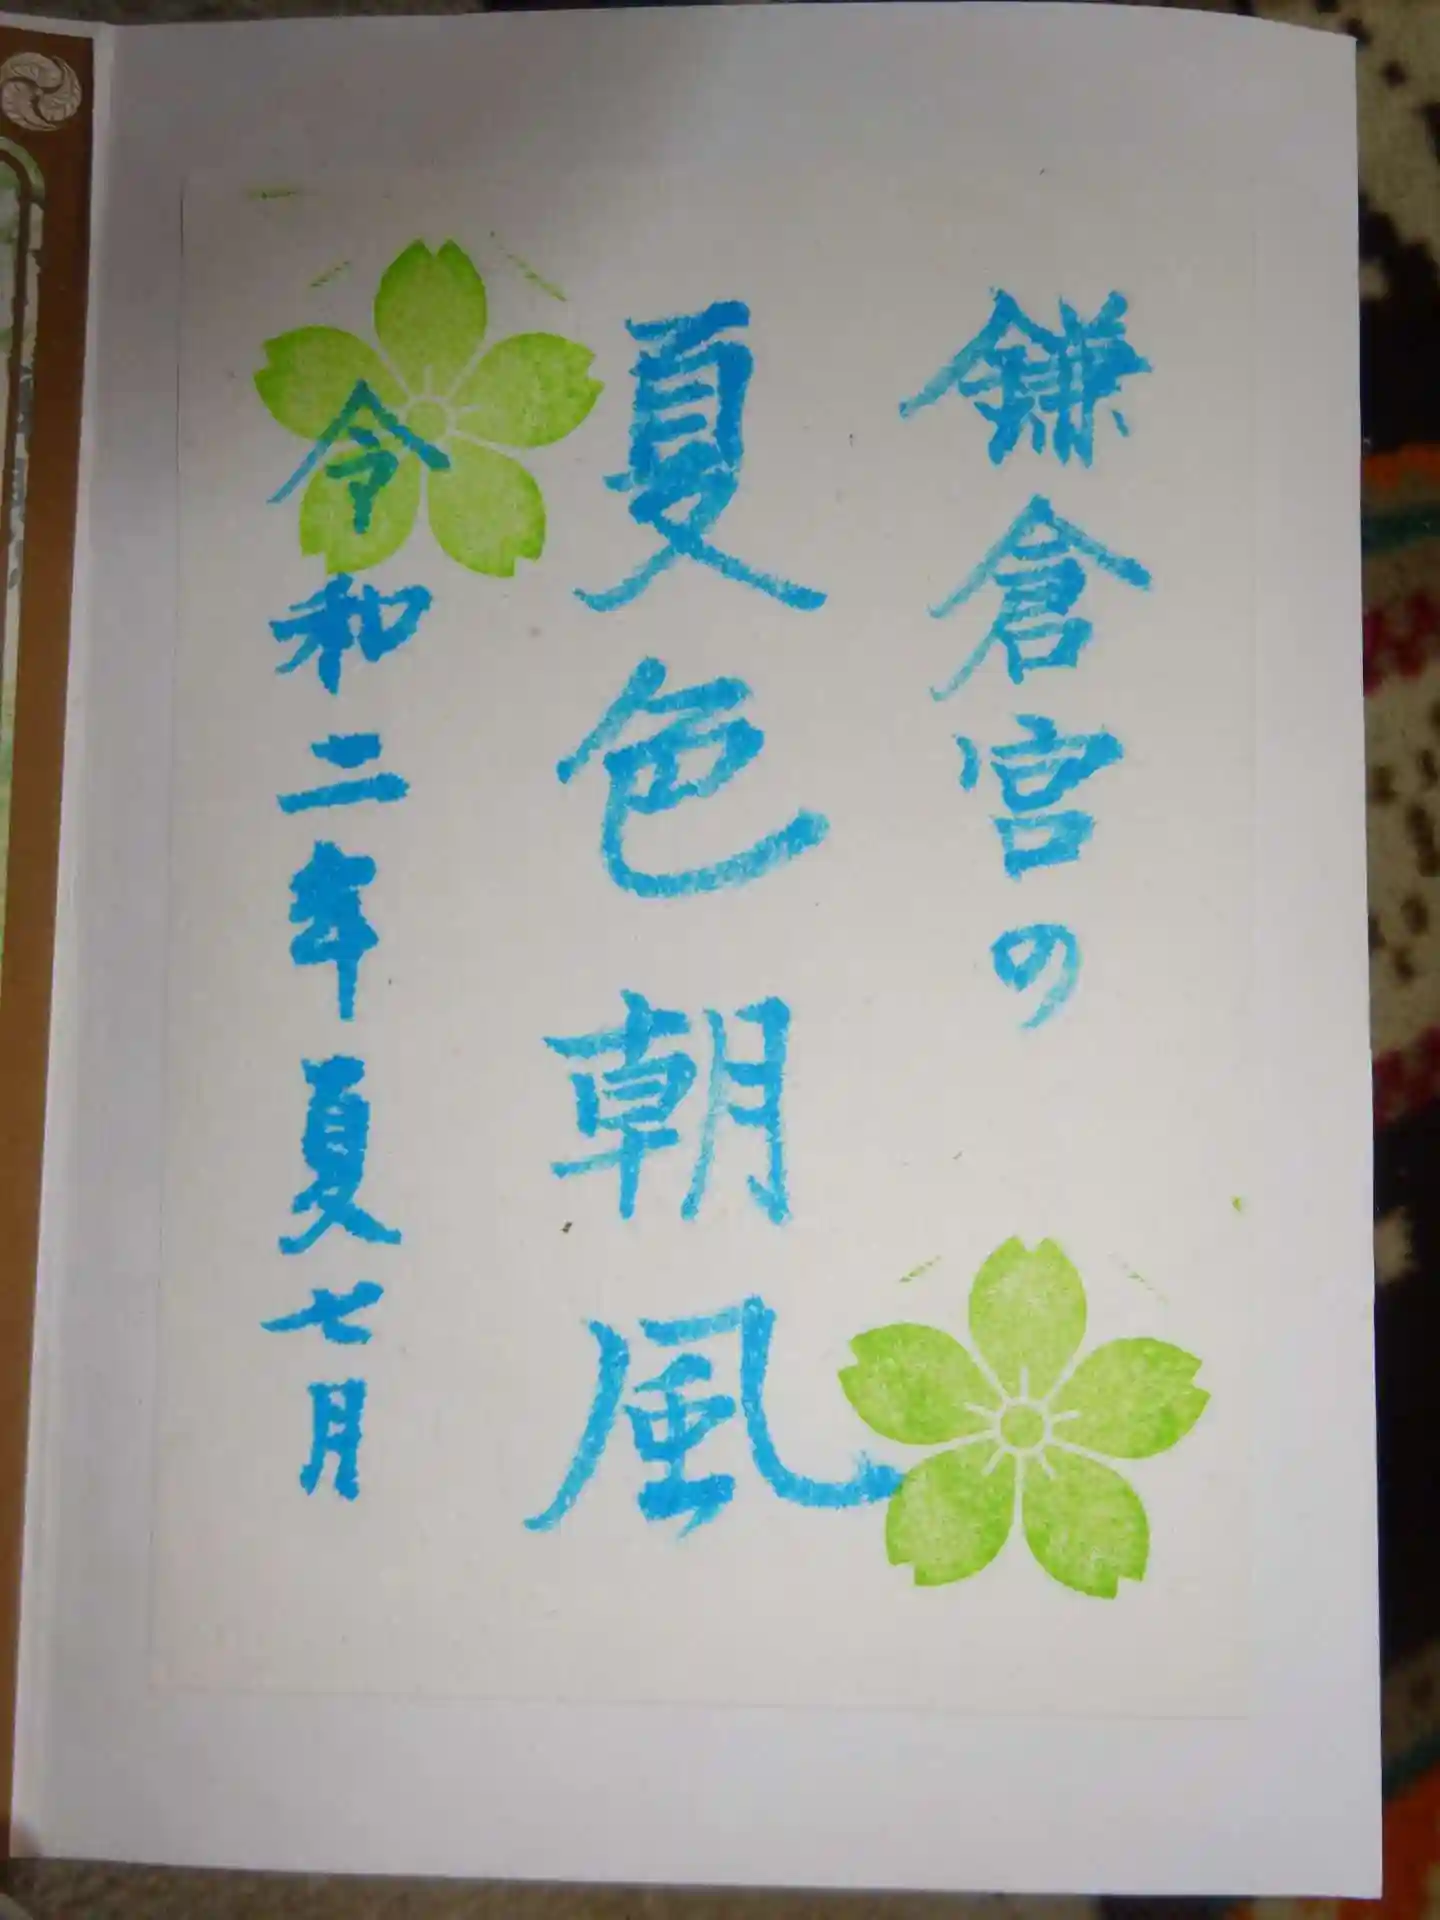 鎌倉宮の
夏色朝風
令和二年夏七月